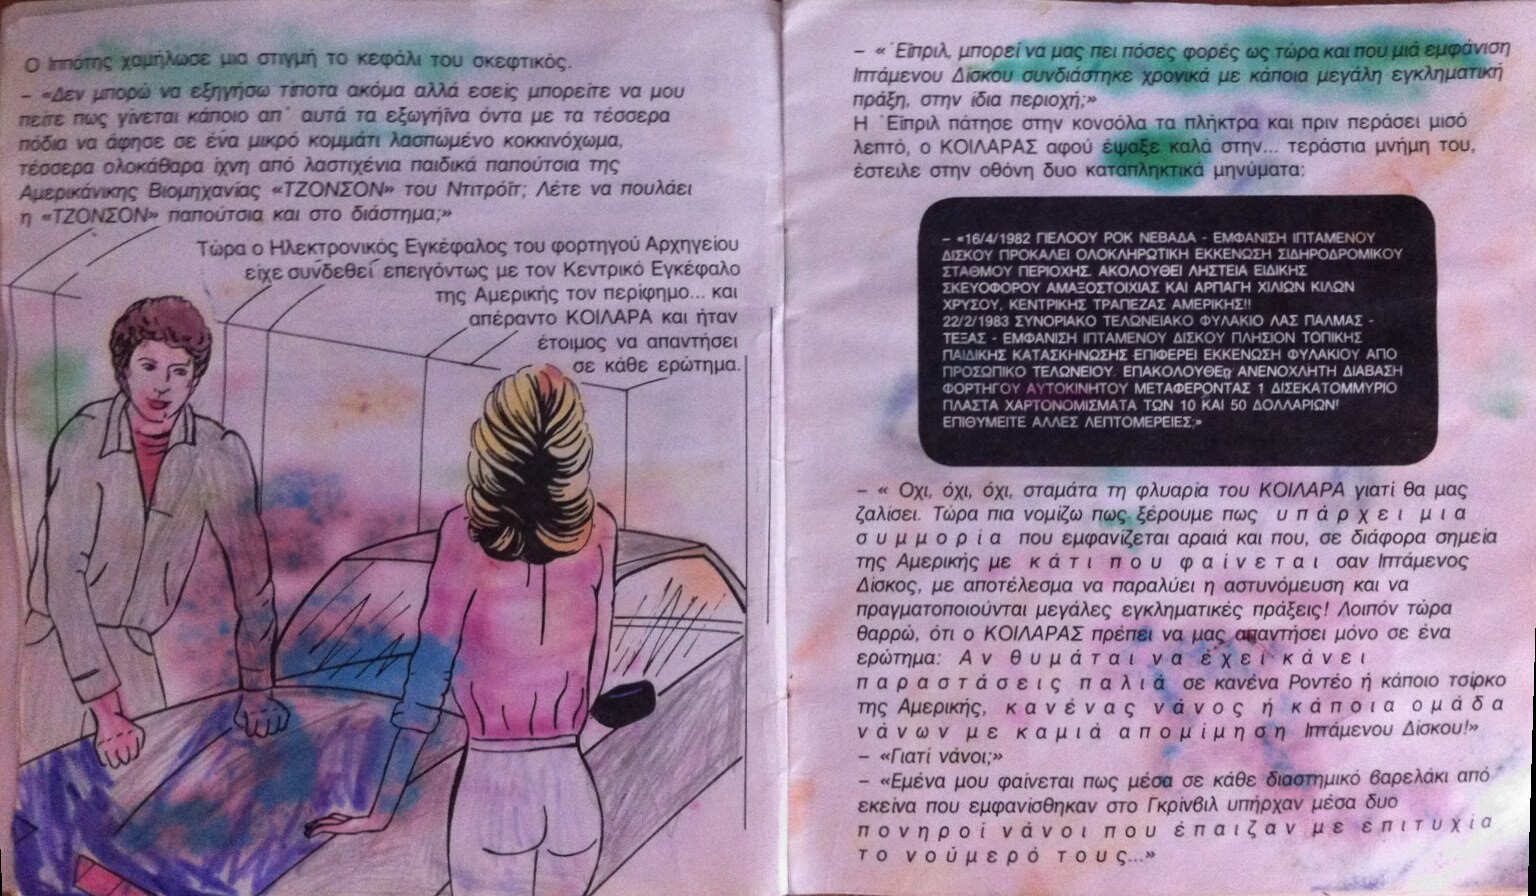 Ο Ιππότης χαμήλωσε μια στιγμή το κεφάλι του σκεφτικός.
– «Δεν μπορώ να εξηγήσω τίποτα ακόμα αλλά εσείς μπορείτε να μου
πείτε πως γίνεται κάποιο απ΄ αυτά τα εξωγήϊνα όντα με τα τέσσερα
πόδια να άφησε σε ένα μικρό κομμάτι λασπωμένο κοκκινόχωμα,
τέσσερα ολοκάθαρα ίχνη από λαστιχένια παιδικά παπούτσια της
Αμερικάνικης Βιομηχανίας «ΤΖΟΝΣΟΝ» του Ντιτρόϊτ; Λέτε να πουλάει
η «ΤΖΟΝΣΟΝ» παπούτσια και στο διάστημα;»
Τώρα ο Ηλεκτρονικός Εγκέφαλος του φορτηγού Αρχηγείου
είχε συνδεθεί επειγόντως με τον Κεντρικό Εγκέφαλο
της Αμερικής τον περίφημο... και
απέραντο ΚΟΙΛΑΡΑ και ήταν
έτοιμος να απαντήσει
σε κάθε ερώτημα.
– «΄Εϊπριλ, μπορεί να μας πει πόσες φορές ως τώρα και που μιά εμφάνιση
Ιπτάμενου Δίσκου συνδιάστηκε χρονικά με κάποια μεγάλη εγκληματική
πράξη, στην ίδια περιοχή;»
Η ΄Εϊπριλ πάτησε στην κονσόλα τα πλήκτρα και πριν περάσει μισό
λεπτό, ο ΚΟΙΛΑΡΑΣ αφού έψαξε καλά στην... τεράστια μνήμη του,
έστειλε στην οθόνη δυο καταπληκτικά μηνύματα:
– «16/4/1982 ΓΙΕΛΟΟΥ ΡΟΚ ΝΕΒΑΔΑ - ΕΜΦΑΝΙΣΗ ΙΠΤΑΜΕΝΟΥ
ΔΙΣΚΟΥ ΠΡΟΚΑΛΕΙ ΟΛΟΚΛΗΡΩΤΙΚΗ ΕΚΚΕΝΩΣΗ ΣΙΔΗΡΟΔΡΟΜΙΚΟΥ
ΣΤΑΘΜΟΥ ΠΕΡΙΟΧΗΣ. ΑΚΟΛΟΥΘΕΙ ΛΗΣΤΕΙΑ ΕΙΔΙΚΗΣ
ΣΚΕΥΟΦΟΡΟΥ ΑΜΑΞΟΣΤΟΙΧΙΑΣ ΚΑΙ ΑΡΠΑΓΗ ΧΙΛΙΩΝ ΚΙΛΩΝ
ΧΡΥΣΟΥ, ΚΕΝΤΡΙΚΗΣ ΤΡΑΠΕΖΑΣ ΑΜΕΡΙΚΗΣ!!
22/2/1983 ΣΥΝΟΡΙΑΚΟ ΤΕΛΩΝΕΙΑΚΟ ΦΥΛΑΚΙΟ ΛΑΣ ΠΑΛΜΑΣ -
ΤΕΞΑΣ - ΕΜΦΑΝΙΣΗ ΙΠΤΑΜΕΝΟΥ ΔΙΣΚΟΥ ΠΛΗΣΙΟΝ ΤΟΠΙΚΗΣ
ΠΑΙΔΙΚΗΣ ΚΑΤΑΣΚΗΝΩΣΗΣ ΕΠΙΦΕΡΕΙ ΕΚΚΕΝΩΣΗ ΦΥΛΑΚΙΟΥ ΑΠΟ
ΠΡΟΣΩΠΙΚΟ ΤΕΛΩΝΕΙΟΥ. ΑΝΕΝΟΧΛΗΤΗ ΔΙΑΒΑΣΗ
ΦΟΡΤΗΓΟΥ ΑΥΤΟΚΙΝΗΤΟΥ ΜΕΤΑΦΕΡΟΝΤΑΣ 1 ΔΙΣΕΚΑΤΟΜΜΥΡΙΟ
ΠΛΑΣΤΑ ΧΑΡΤΟΝΟΜΙΣΜΑΤΑ ΤΩΝ 10 ΚΑΙ 50 ΔΟΛΛΑΡΙΩΝ!
ΕΠΙΘΥΜΕΙΤΕ ΑΛΛΕΣ ΛΕΠΤΟΜΕΡΕΙΕΣ;»
– « Οχι, όχι, όχι, σταμάτα τη φλυαρία του ΚΟΙΛΑΡΑ γιατί θα μας
ζαλίσει. Τώρα πια νομίζω πως ξέρουμε πως υπάρχει μια
συμμορία που εμφανίζεται αραιά και που, σε διάφορα σημεία
της Αμερικής με κάτι που φαίνεται σαν Ιπτάμενος
Δίσκος, με αποτέλεσμα να παραλύει η αστυνόμευση και να
πραγματοποιούνται μεγάλες εγκληματικές πράξεις! Λοιπόν τώρα
θαρρώ, ότι ο ΚΟΙΛΑΡΑΣ πρέπει να μας απαντήσει μόνο σε ένα
ερώτημα: Αν θυμάται να έχει κάνει
παραστάσεις παλιά σε κανένα Ροντέο ή κάποιο τσίρκο
της Αμερικής, κανένας νάνος ή κάποια ομάδα
νάνων με καμιά απομίμηση Ιπτάμενου Δίσκου!»
– «Γιατί νάνοι;»
– «Εμένα μου φαίνεται πως μέσα σε κάθε διαστημικό βαρελάκι από
εκείνα που εμφανίσθηκαν στο Γκρίνβιλ υπήρχαν μέσα δυο
πονηροί νάνοι που έπαιζαν με επιτυχία
το νούμερό τους...»